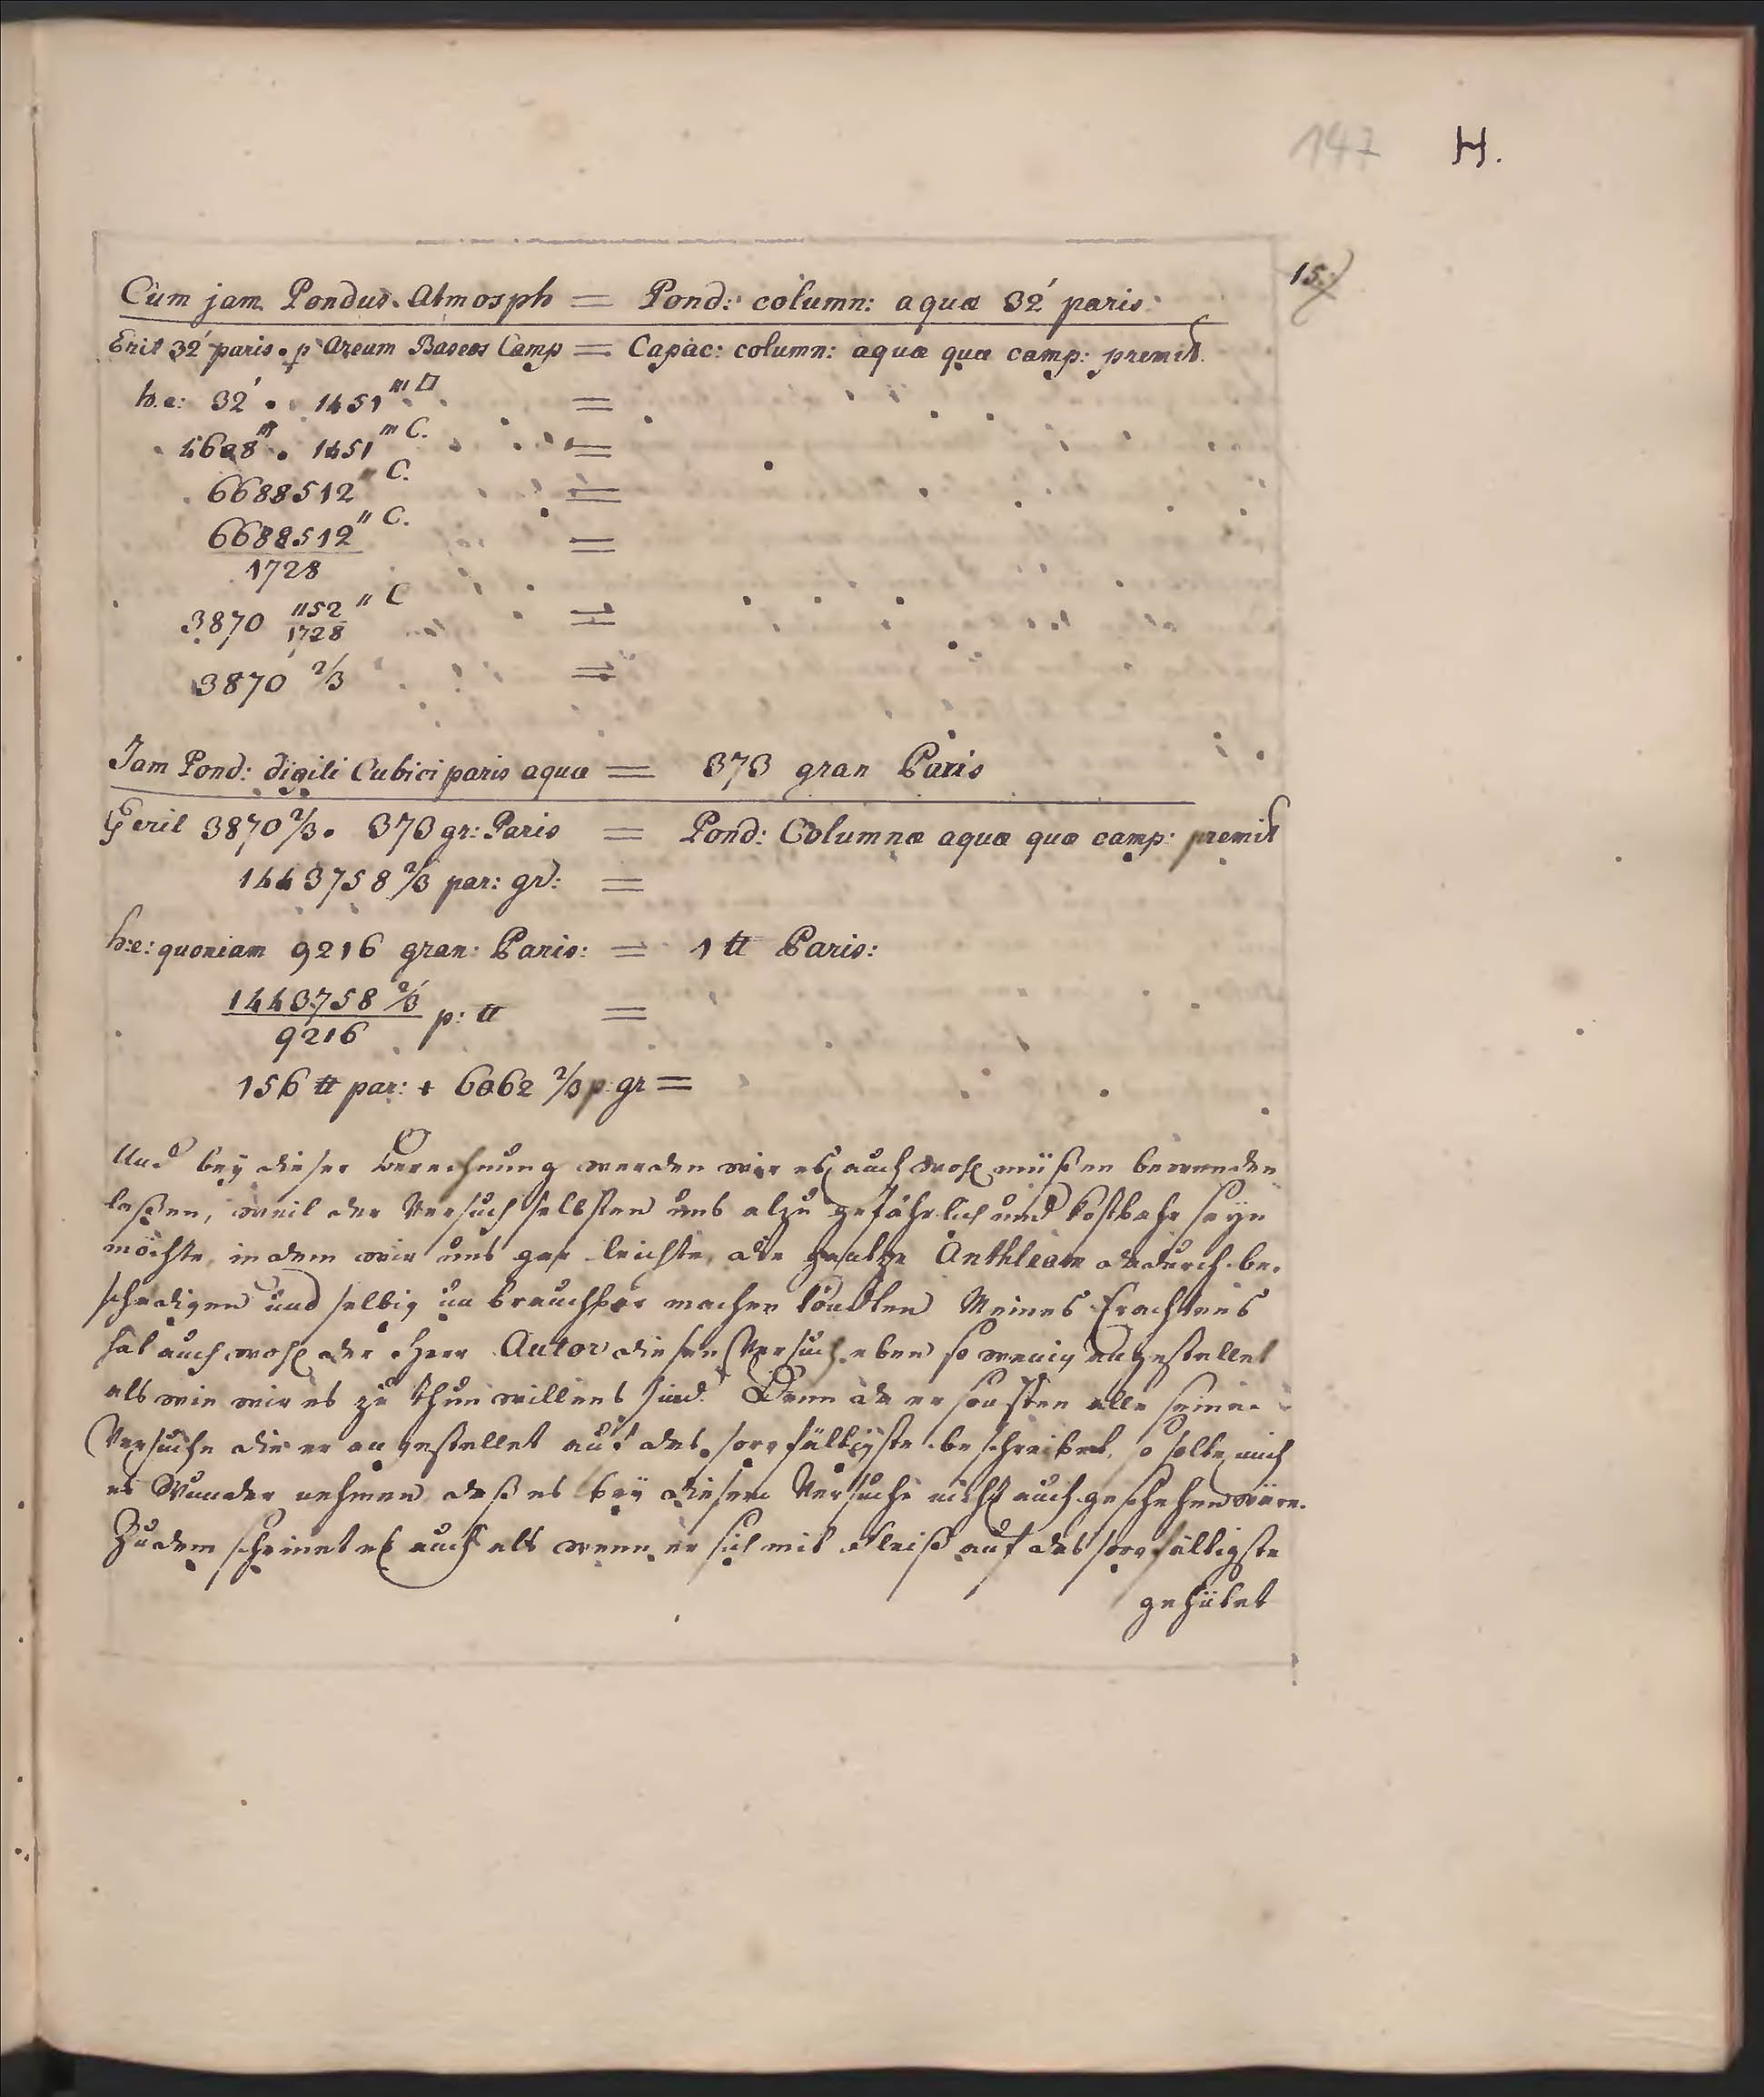 147 H.
15.)
Cum jam Pondus Atmosph = Pond: column: aquæ 32' paris:
Erit 32' paris. p Aream Baseos Camp = Capac: column: aquæ quæ camp: premit.
h.e: 32' . 1451''' □ =
4608''' . 1451''' C. =
6688512''' C. =
6688512'' C. =
1728
3870 1152/1728 '' C =
3870 2/3 =
Jam Pond: digiti Cubici paris aquæ = 373 gran Paris
Erit 3870 2/3 . 373 gr: Paris = Pond: Columnæ aquæ quæ camp: premit
1443758 2/3 par: gr: =
h:e: quoniam 9216 gran: Paris: = 1 ℔ Paris:
1443758 2/3 p: ℔ =
9216
156 ℔ par: + 6062 2/3 p. gr =
Und bey dieser Berechnung werden wir es auch wohl müßen bewenden
laßen, weil der Versuch selbsten uns alzu gefährlich und kostbahr seyn
möchte, in dem wir uns gar leichte die gantze Anthleam dadurch be-
schadigen und selbig un brauchbar machen köndten Meines Erachtens
hat auch wohl der Herr Autor diesen Versuch eben so wenig angestellet
als wie wir es zu thun willens sind. Denn da er sonsten alle seine
Versuche die er angestellet auf das sorgfältigste beschreibet, so solte mich
es Wunder nehmen daß es bey diesem Versuche nicht auch geschehen wäre.
Zu dem scheinet es auch als wenn er sich mit Fleiß auf das sorgfältigste
gehütet